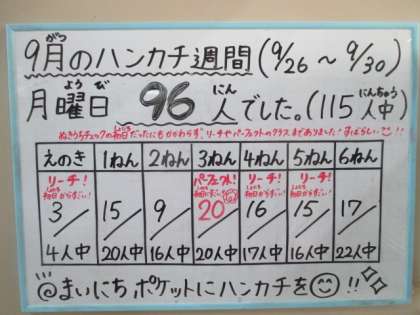 9月のハンカチ週間(9/26～9/30)
がつ
月曜日 96人でした。(115人中)
よう び にん にんちゅう
ぬきうちチェックの初日だったにもかかわらず、リーチやパーフェクトのクラスまでありました!すばらしい!!
えのき 1ねん 2ねん 3ねん 4ねん 5ねん 6ねん
リーチ! パーフェクト! リーチ! リーチ!
初日からすごい! 初日からすごい! 初日からすごい!
3/ 15/ 9/ 20/ 16/ 15/ 17/
4人中 20人中 16人中 20人中 17人中 16人中 22人中
@まいにち ポケットに ハンカチを!!